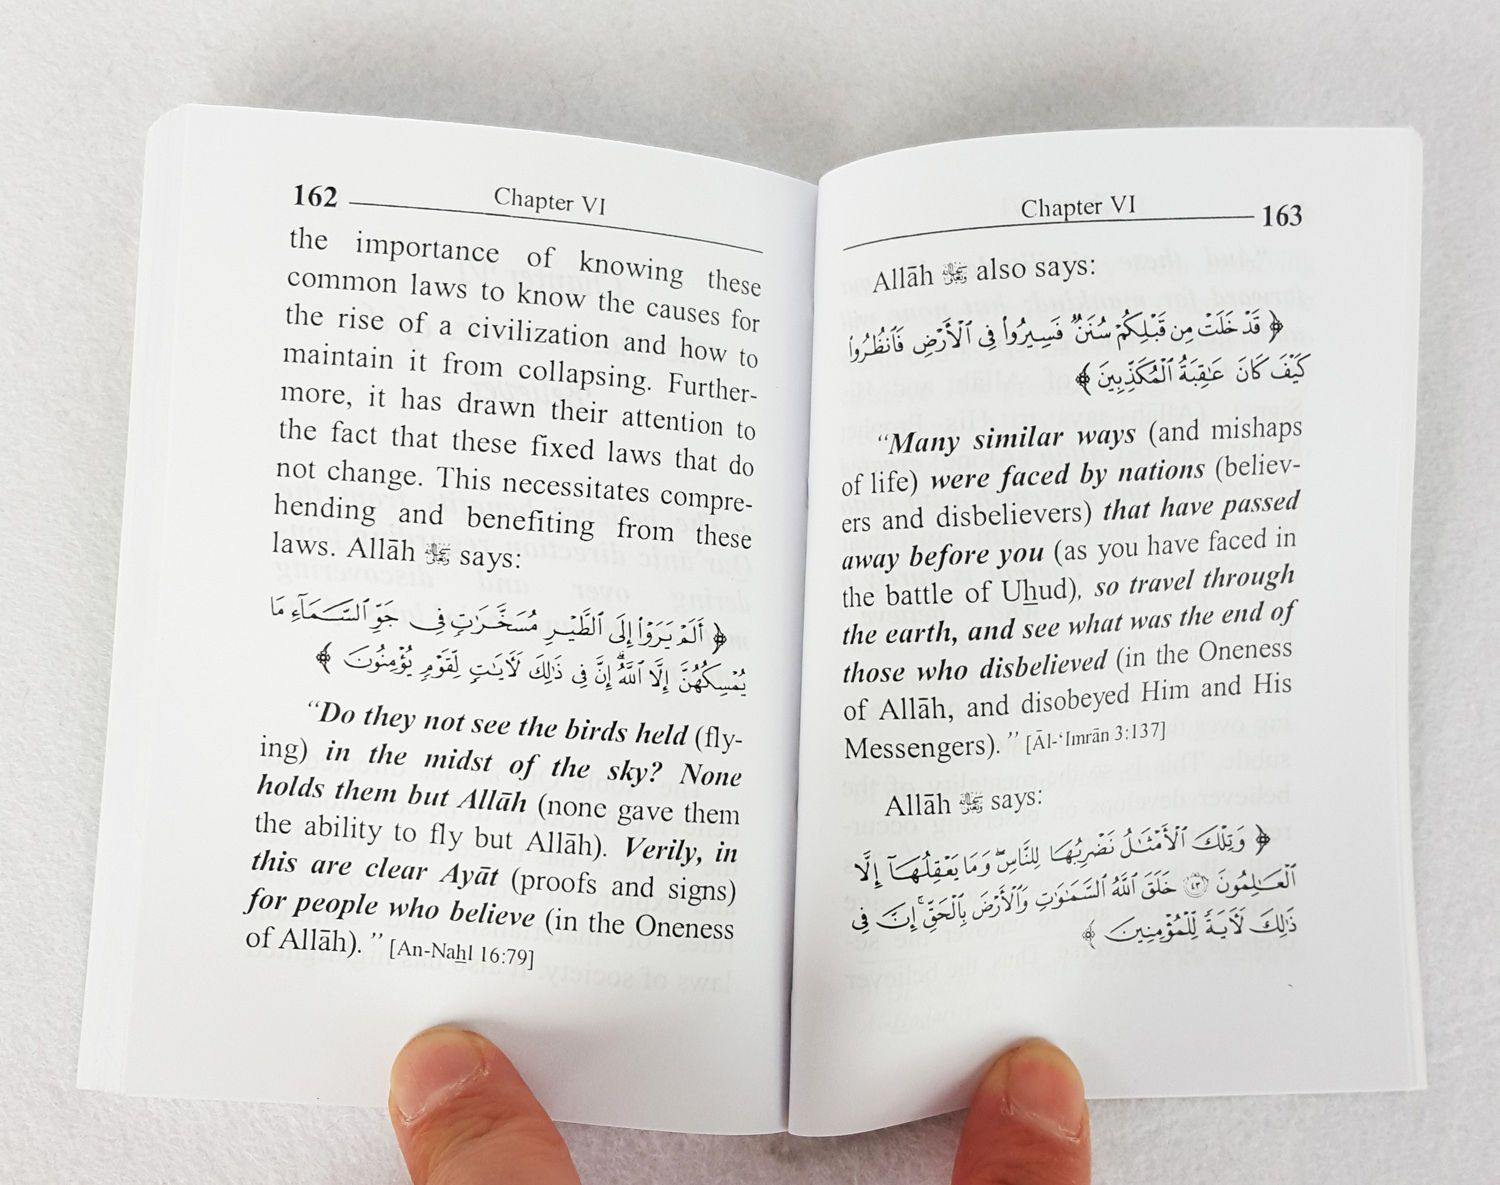 162 Chapter VI
the importance of knowing these
common laws to know the causes for
the rise of a civilization and how to
maintain it from collapsing. Further-
more, it has drawn their attention to
the fact that these fixed laws that do
not change. This necessitates compre-
hending and benefiting from these
laws. Allāh ﷻ says:
﴿ أَلَمْ يَرَوْا۟ إِلَى ٱلطَّيْرِ مُسَخَّرَٰتٍ فِى جَوِّ ٱلسَّمَآءِ مَا
يُمْسِكُهُنَّ إِلَّا ٱللَّهُ ۗ إِنَّ فِى ذَٰلِكَ لَـَٔايَـٰتٍ لِّقَوْمٍ يُؤْمِنُونَ ﴾
“Do they not see the birds held (fly-
ing) in the midst of the sky? None
holds them but Allāh (none gave them
the ability to fly but Allāh). Verily, in
this are clear Ayāt (proofs and signs)
for people who believe (in the Oneness
of Allāh).” [An-Naẖl 16:79]
Chapter VI 163
Allāh ﷻ also says:
﴿ قَدْ خَلَتْ مِن قَبْلِكُمْ سُنَنٌ فَسِيرُوا۟ فِى ٱلْأَرْضِ فَٱنظُرُوا۟
كَيْفَ كَانَ عَـٰقِبَةُ ٱلْمُكَذِّبِينَ ﴾
“Many similar ways (and mishaps
of life) were faced by nations (believ-
ers and disbelievers) that have passed
away before you (as you have faced in
the battle of Uẖud), so travel through
the earth, and see what was the end of
those who disbelieved (in the Oneness
of Allāh, and disobeyed Him and His
Messengers).” [Āl-‘Imrān 3:137]
Allāh ﷻ says:
﴿ وَتِلْكَ ٱلْأَمْثَـٰلُ نَضْرِبُهَا لِلنَّاسِ ۖ وَمَا يَعْقِلُهَآ إِلَّا
ٱلْعَـٰلِمُونَ ٤٣ خَلَقَ ٱللَّهُ ٱلسَّمَـٰوَٰتِ وَٱلْأَرْضَ بِٱلْحَقِّ ۚ إِنَّ فِى
ذَٰلِكَ لَـَٔايَةً لِّلْمُؤْمِنِينَ ﴾